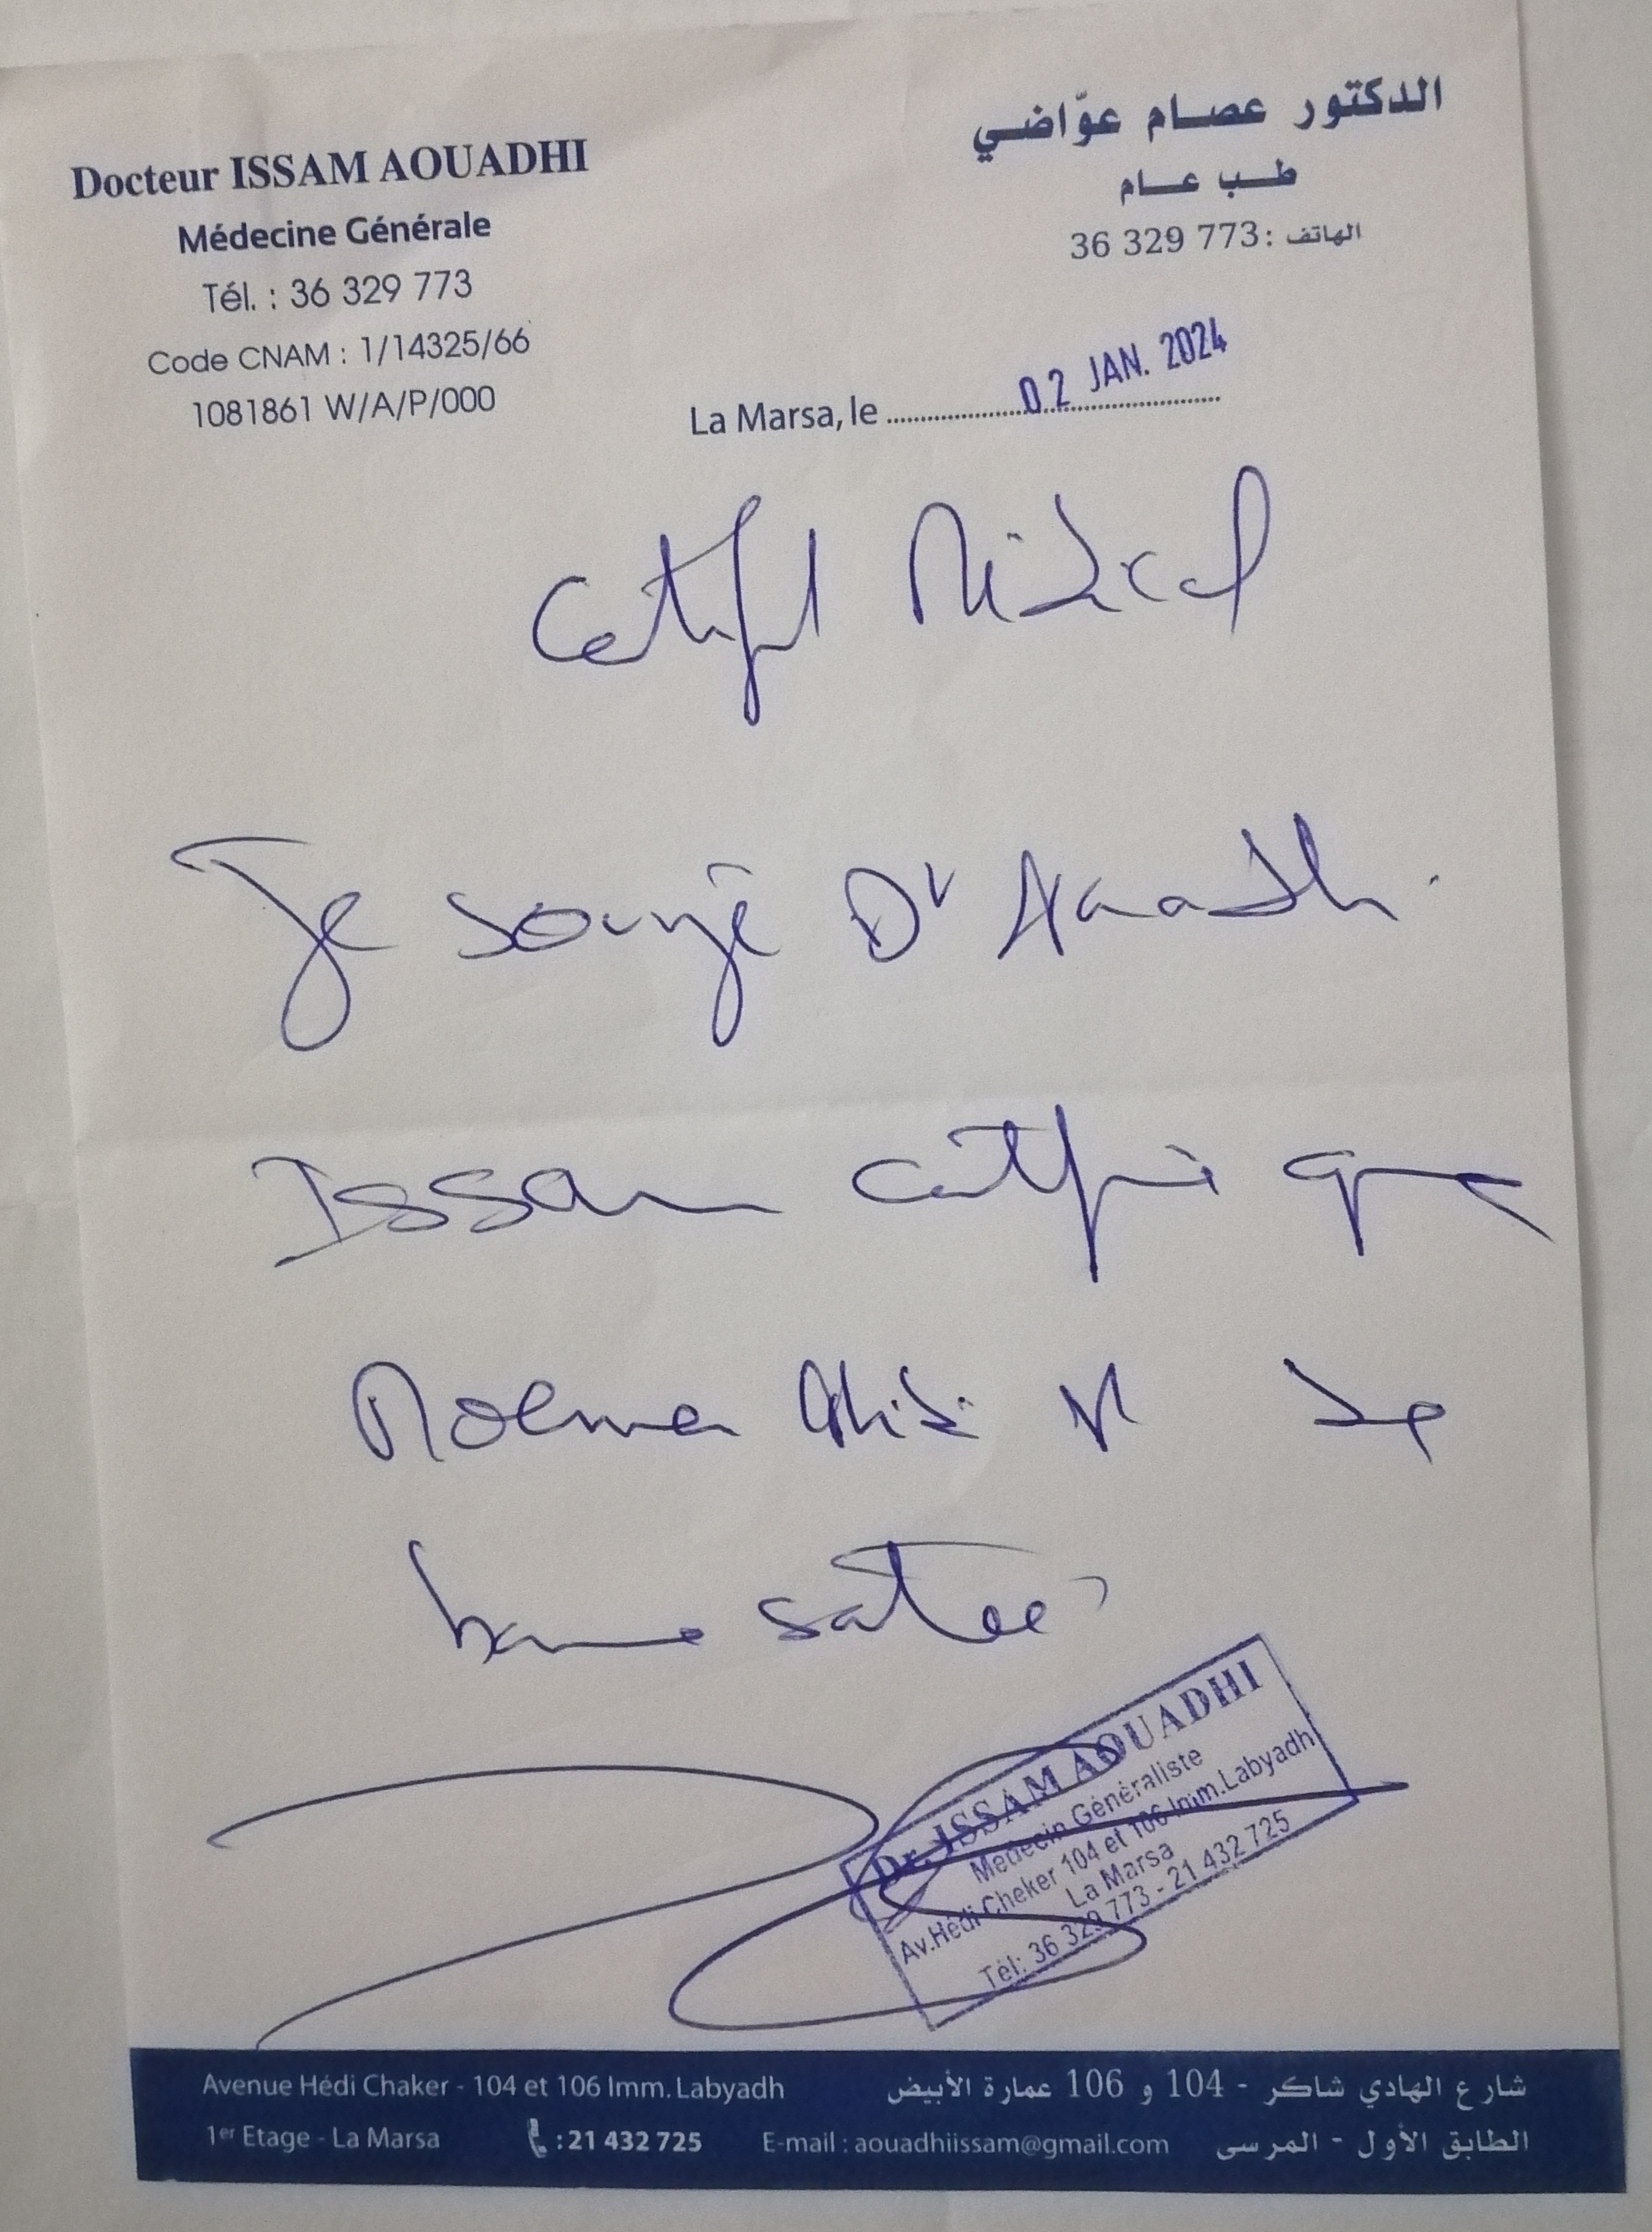 Docteur ISSAM AOUADHI
Médecine Générale
Tél. : 36 329 773
Code CNAM : 1/14325/66
1081861 W/A/P/000
الدكتور عصام عوّاضي
طب عام
الهاتف : 36 329 773
La Marsa, le 02 JAN. 2024
Certificat Médical
Je soussigné Dr Aouadhi
Issam certifie que
est de
bonne santé
Dr. ISSAM AOUADHI
Médecin Généraliste
Av.Hédi Cheker 104 et 106 Imm.Labyadh
La Marsa
Tél: 36 329 773 - 21 432 725
Avenue Hédi Chaker - 104 et 106 Imm. Labyadh
1er Etage - La Marsa : 21 432 725 E-mail : aouadhiissam@gmail.com
شارع الهادي شاكر - 104 و 106 عمارة الأبيض
الطابق الأول - المرسى